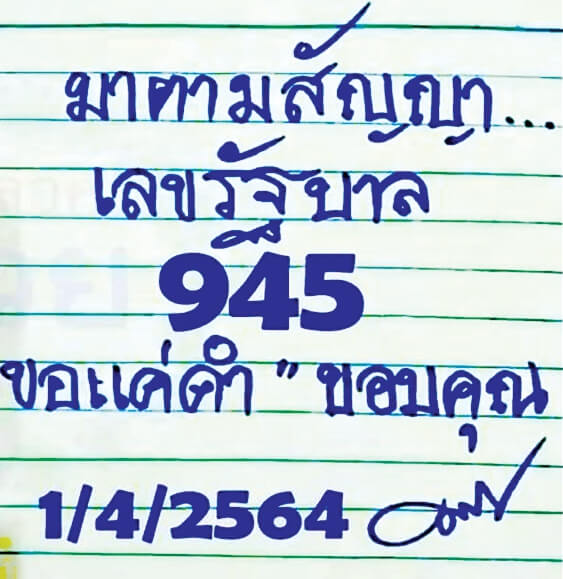 มาตามสัญญา...
เลขรัฐบาล
945
ขอแค่คำ "ขอบคุณ
1/4/2564